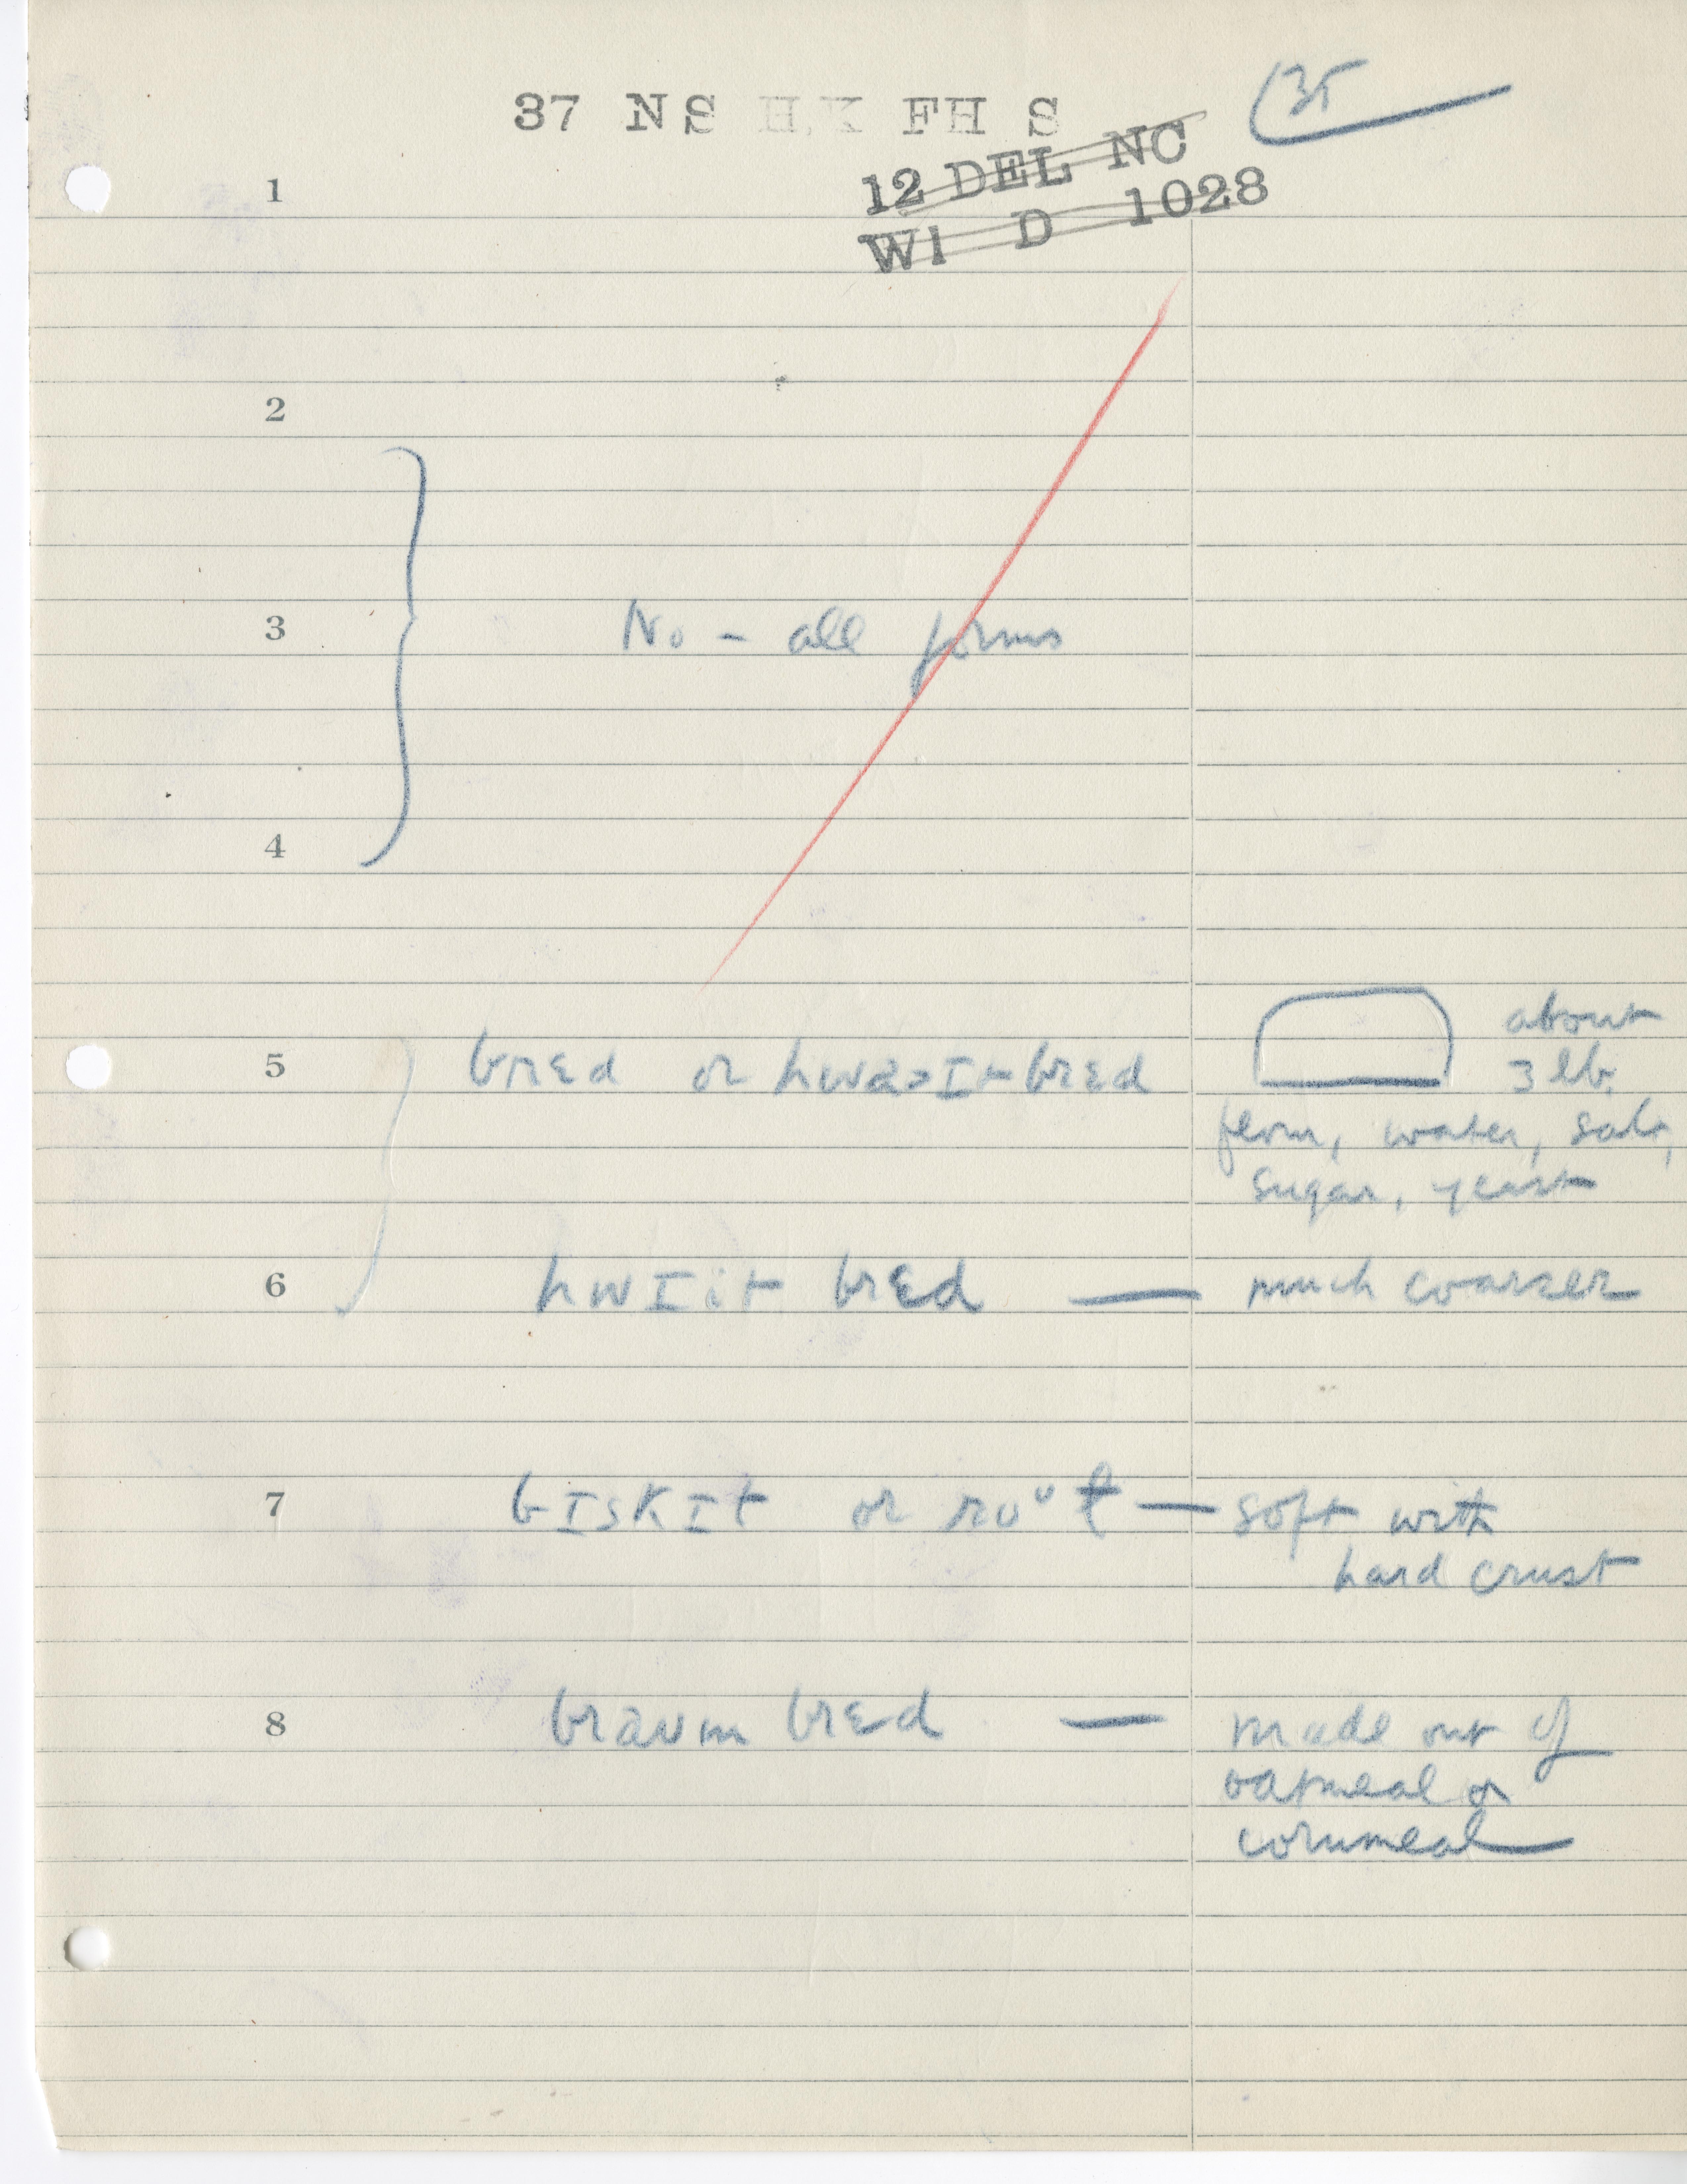 37 NS H.K FH S
35
12 DEL NC
W1 D 1028
1
2
3 No – all forms
4
about
5 brɛd or hwaɪt brɛd 3 lb.
water, salt,
sugar, yeast
6 hwɪit brɛd — much coarser
7 bɪskɪt or roᵘɫ — soft with
hard crust
8 braʊn brɛd — made out of
oatmeal or
cornmeal